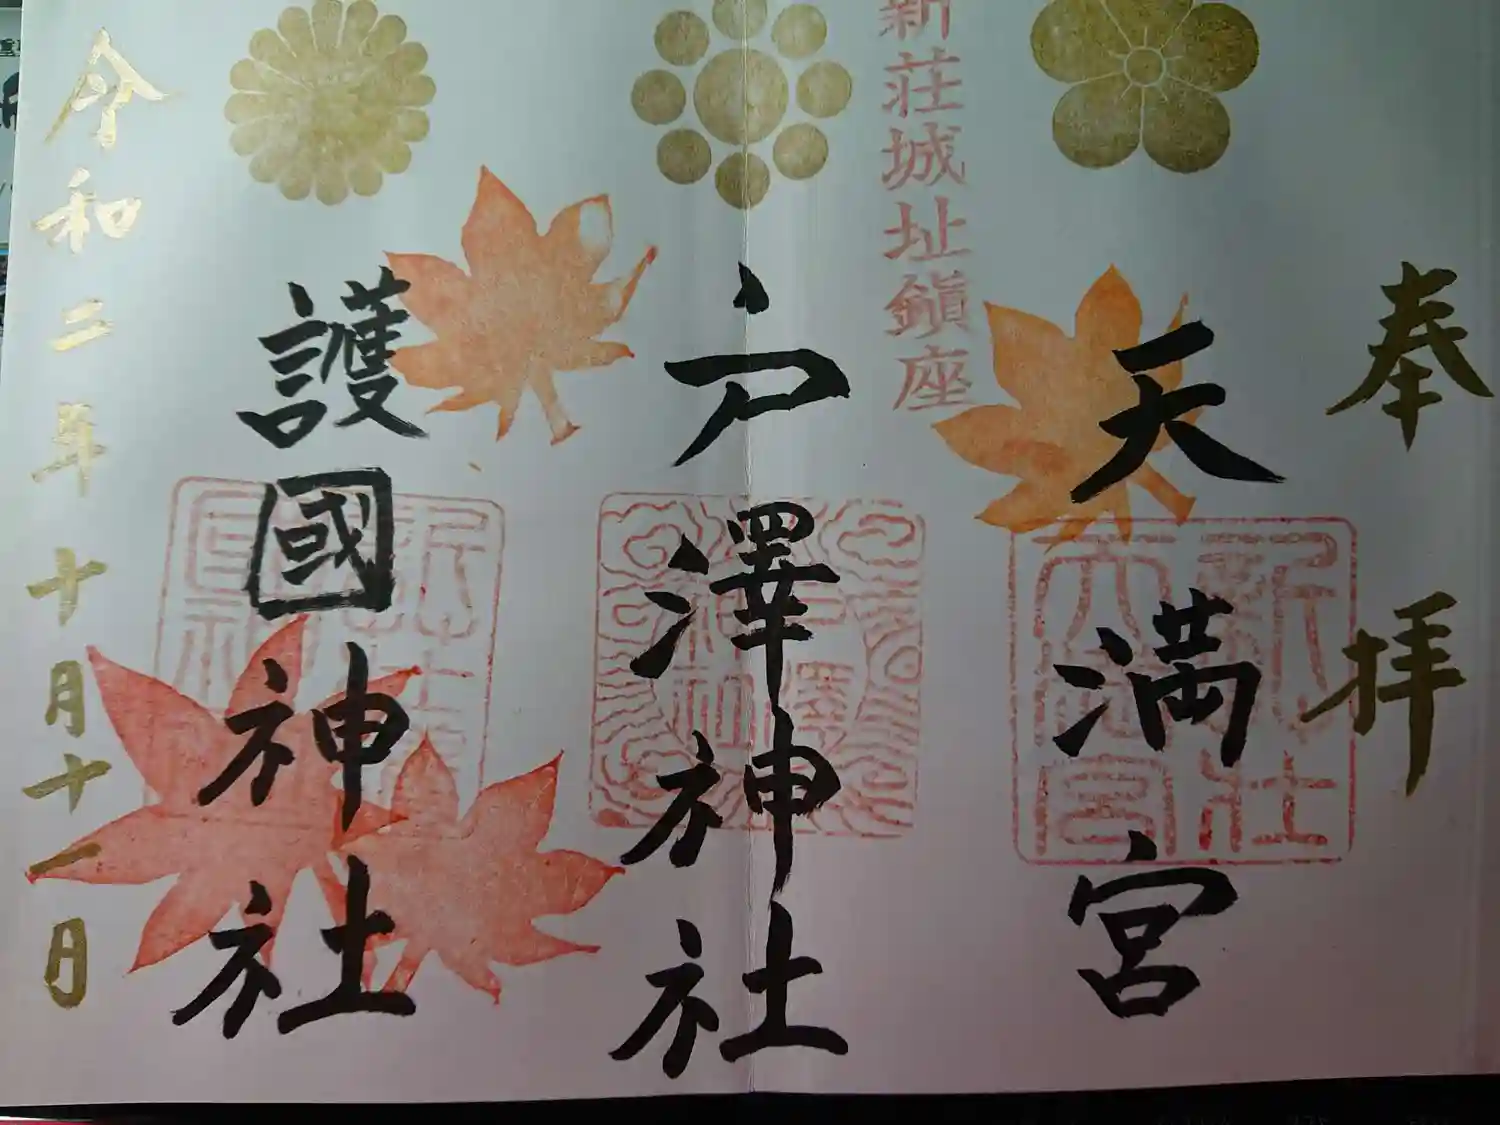 奉拝
天満宮
新荘城址鎮座
戸澤神社
護國神社
令和二年十月十一日